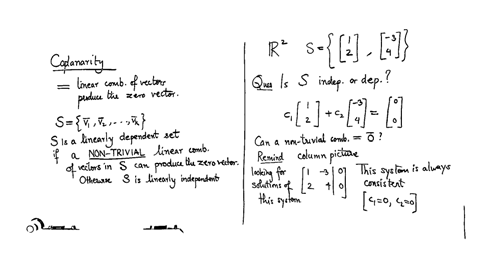 Coplanarity
= linear comb. of vectors
produce the zero vector.
S = {v̄₁, v̄₂, ..., v̄ₖ}
S is a linearly dependent set
if a NON-TRIVIAL linear comb.
of vectors in S can produce the zero vector.
Otherwise S is linearly independent
ℝ² S = { [1 2], [-3 4] }
Ques Is S indep. or dep.?
c₁ [1 2] + c₂ [-3 4] = [0 0]
Can a non-trivial comb. = 0̄ ?
Remind column picture
looking for
solutions of
this system
[1 -3 | 0
2 4 | 0]
This system is always
consistent
[c₁=0, c₂=0]